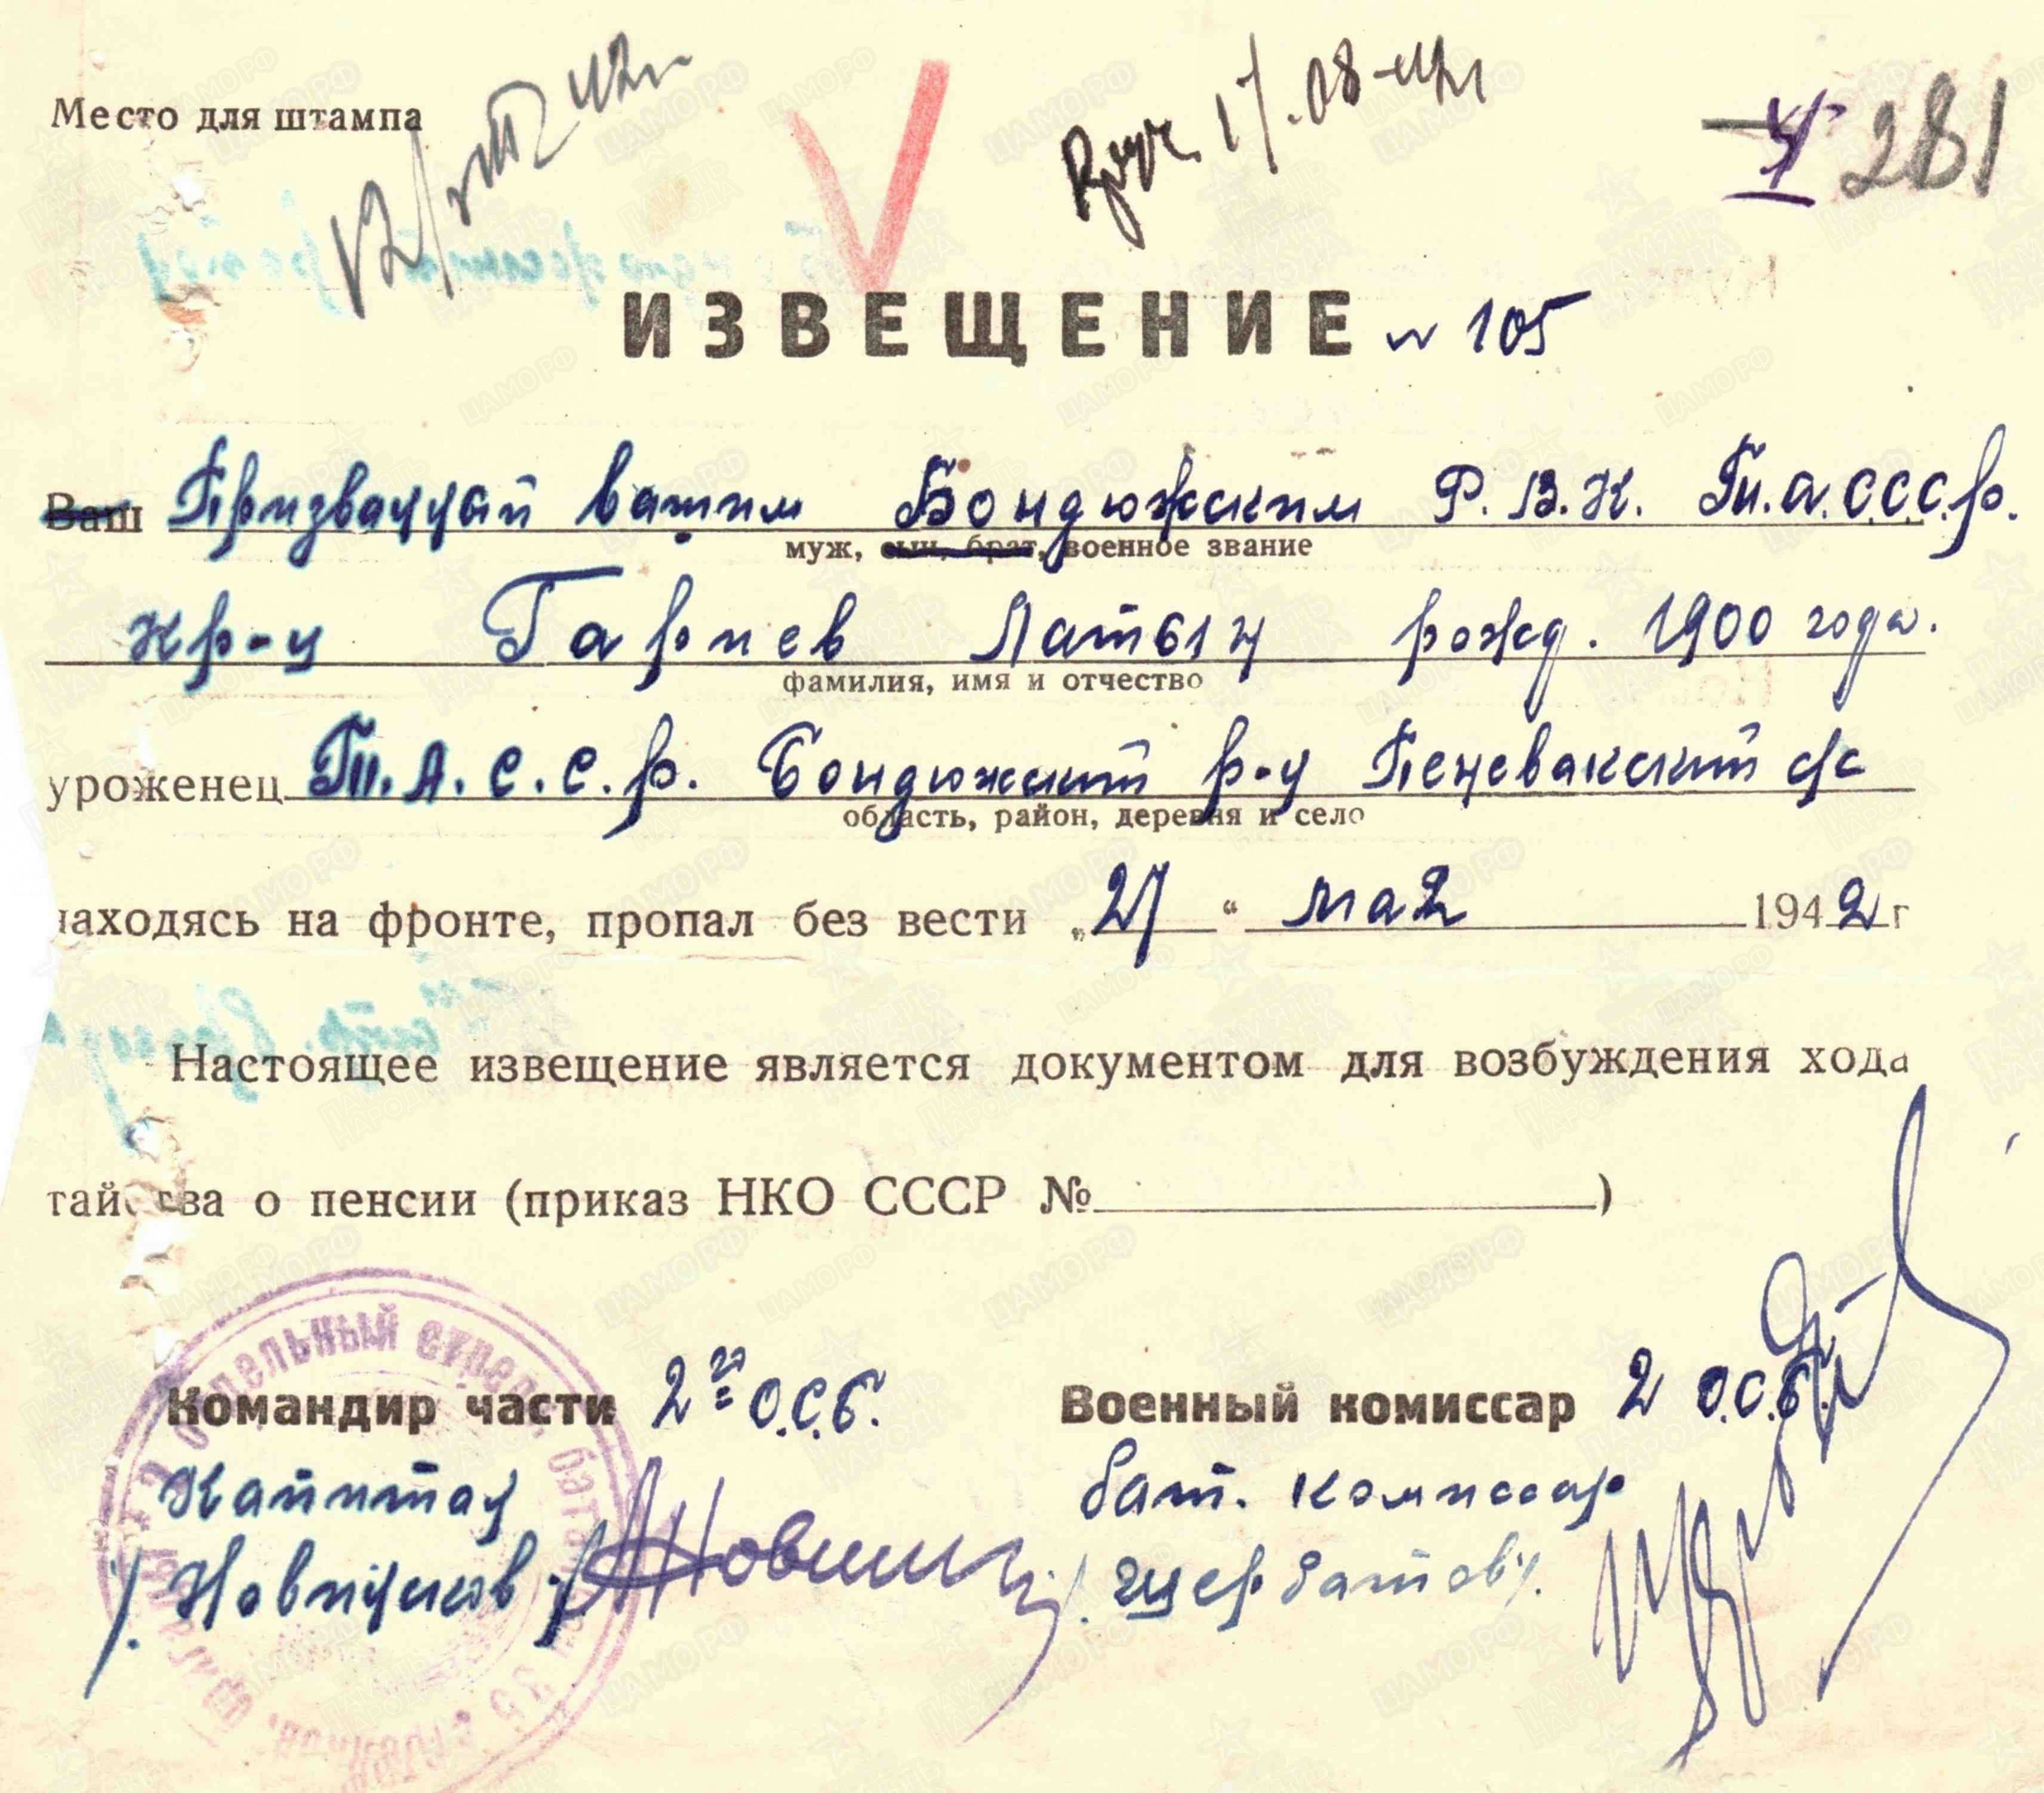 Место для штампа
17.08-42г
281
ИЗВЕЩЕНИЕ № 105
Ваш Призванный вашим Бондюжским Р.В.К. Т.а.С.С.С.р.
муж, сын, брат, военное звание
кр-ц Гариев Латып рожд. 1900 года.
фамилия, имя и отчество
уроженец Т.А.С.С.р. Бондюжский р-н с/с
область, район, деревня и село
находясь на фронте, пропал без вести „27“ мая 1942 г
Настоящее извещение является документом для возбуждения хода
тайства о пенсии (приказ НКО СССР № )
Командир части 2го О.С.б. Военный комиссар 2 О.С.б.
Капитан бат. комиссар
/Новичков/ /Щербатов/.
отдельный стрел. батальон